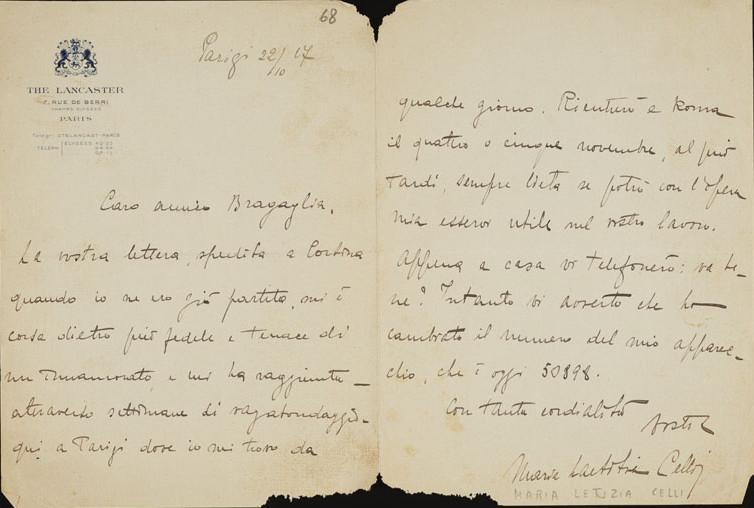 68
Parigi 22/10 17
THE LANCASTER
7, RUE DE BERRI
CHAMPS ELYSÉES
PARIS
Telegr: OTELANCAST-PARIS
TÉLÉPH: ELYSÉES
Caro amico Bragaglia,
La vostra lettera, spedita a Cortina
quando io ne ero già partita, mi è
corsa dietro più fedele e tenace di
un innamorato, e mi ha raggiunta
attraverso settimane di vagabondaggio
qui a Parigi dove io mi trovo da
qualche giorno. Rientrerò a Roma
il quattro o cinque novembre, al più
tardi, sempre lieta se potrò con l'opera
mia esservi utile nel vostro lavoro.
Appena a casa vi telefonerò: va be-
ne? Intanto vi avverto che ho
cambiato il numero del mio apparec-
chio, che è oggi 50898.
Con tanta cordialità
vostra
Maria Laetitia Celli
MARIA LETIZIA CELLI